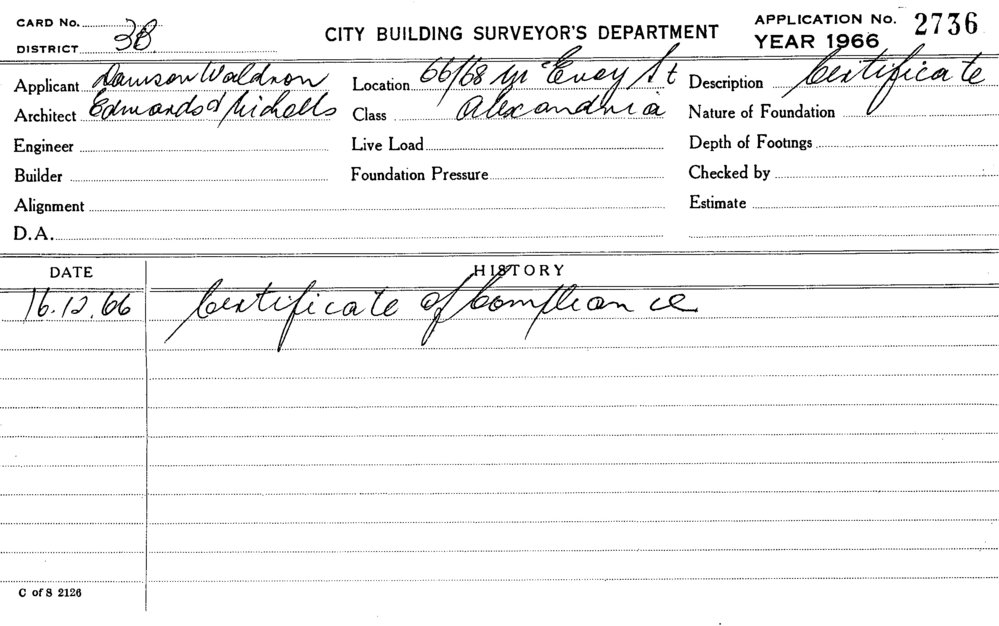 CARD No.
DISTRICT 3B
CITY BUILDING SURVEYOR'S DEPARTMENT
APPLICATION No. 2736
YEAR 1966
Applicant Dawson Waldron
Location 66/68 McEvoy St
Description Certificate
Architect Edwards & Nicholls
Class Alexandria
Nature of Foundation
Engineer
Live Load
Depth of Footings
Builder
Foundation Pressure
Checked by
Alignment
Estimate
D.A.
DATE
HISTORY
16.12.66 Certificate of Compliance
C of S 2126